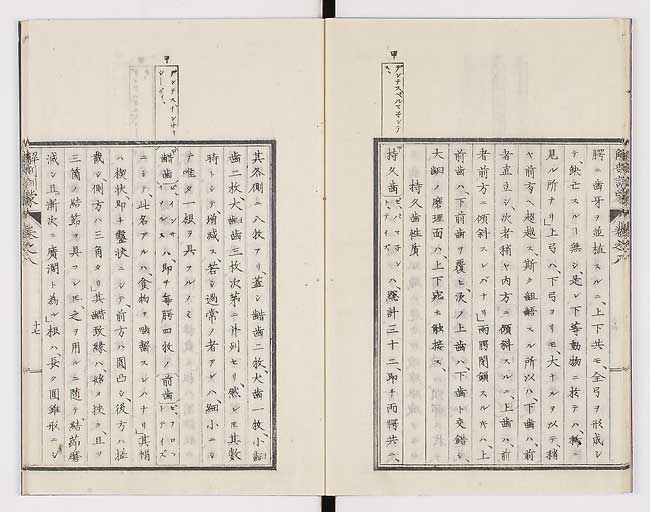 甲
デンテスペルマチンテ
ス、
腭ニ歯牙ヲ並植スルニ、上下共モ全弓ヲ形成シ
テ、缺亡スル┐無シ是レ下等動物ニ於テハ
見ル所ナリ上弓ハ、下弓ヨリモ大ナルヲ以テ、稍
ヤ前方ヘ超越ス、斯ク齟齬スル所以ハ、下歯ハ、前
者直立シ次者稍ヤ内方ニ傾斜スルモ、上歯ハ、前
者前方ニ傾斜スレバナリ両腭閉鎖スル寸ハ、上
前歯ハ、下前歯ヲ覆ヒ、次ノ上歯ハ下歯ト交錯シ、
大細ノ磨理面ハ、上下宛モ触接ス、
持久歯性質
持久歯ハ、総計三十二、即チ両腭共ニ、
十七
甲
デンテスインサ
其各側ニ八枚アリ、蓋シ齰歯二枚、犬歯一枚、小齠
歯二枚、大齠歯三枚次第ニ并列セリ、然レ𪜈其数
時トシテ増減ス、若シ過常ノ者アレハ、細小ニシ
テ唯タ一根ヲ具フルノミ
齰歯ハ、即チ毎腭四枚ノ前歯
ニシテ此名アルハ、食物ヲ齰齧スレハナリ其㡌
ハ楔状、即チ鑿状ニシテ、前方ハ圓凸シ、後方ハ
截シ、側方ハ三角タリ其齰致縁ハ、始メ狭ク且ツ
三箇ノ結節ヲ具フレ𪜈之ヲ用ルニ随テ結節磨
滅シ且漸次ニ廣濶ト為ル根ハ、長ク圓錐形ニシ